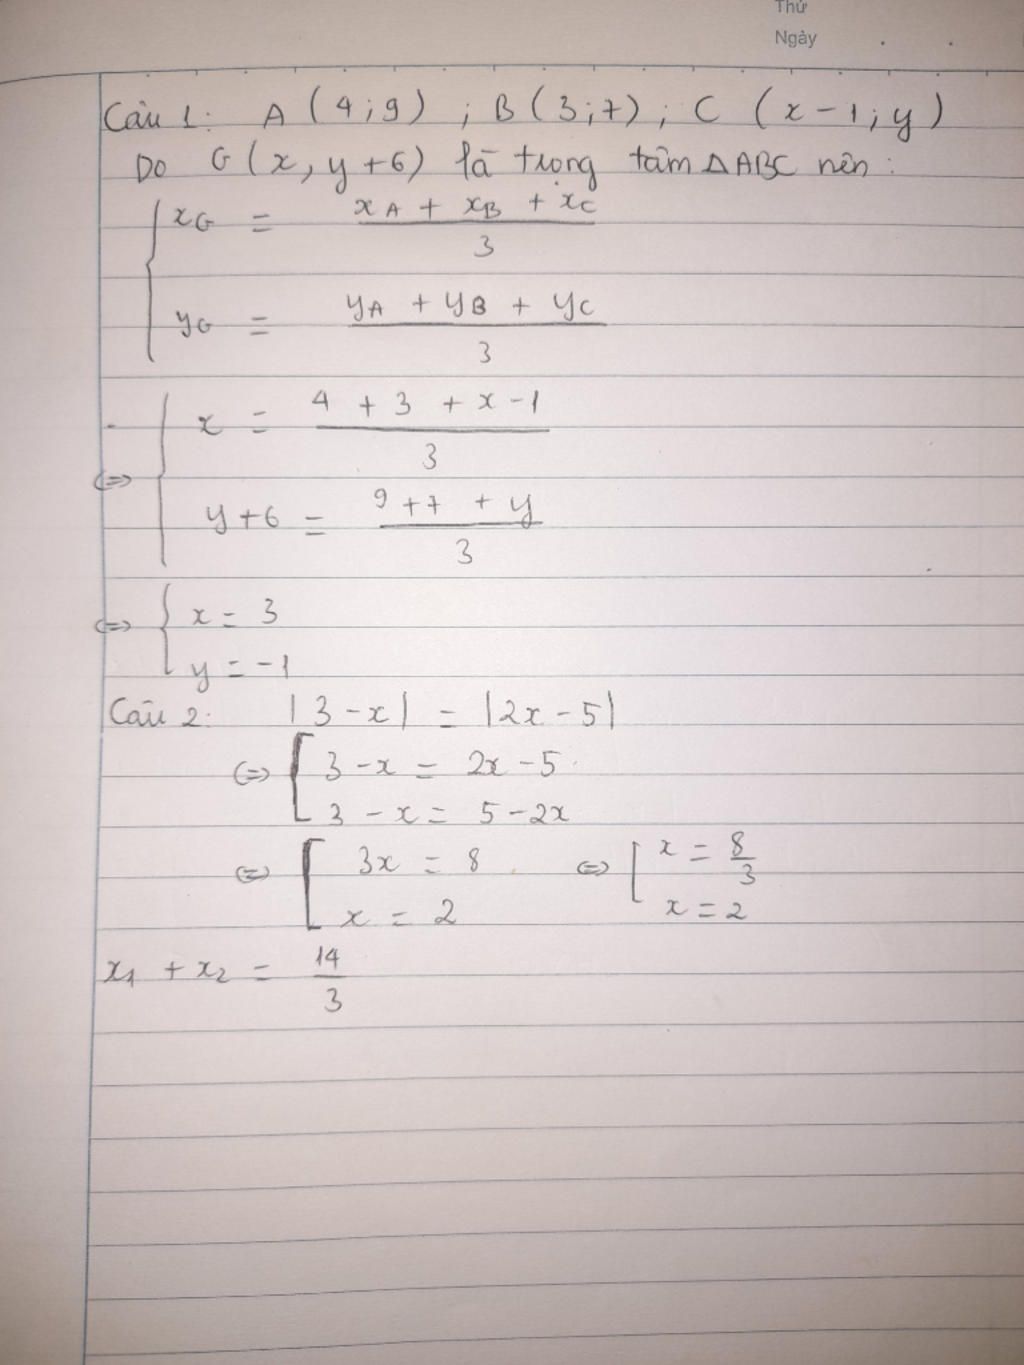 Thứ
Ngày
Câu 1: A (4;9) ; B (3;7) ; C (x-1;y)
Do G(x, y+6) là trọng tâm △ABC nên:
{ xG = (xA + xB + xC)/3
yG = (yA + yB + yC)/3
⇔ { x = (4 + 3 + x - 1)/3
y+6 = (9+7 + y)/3
⇔ { x = 3
y = -1
Câu 2: |3-x| = |2x-5|
⇔ [ 3-x = 2x-5
3-x = 5-2x
⇔ [ 3x = 8 ⇔ [ x = 8/3
x = 2 x = 2
x1 + x2 = 14/3